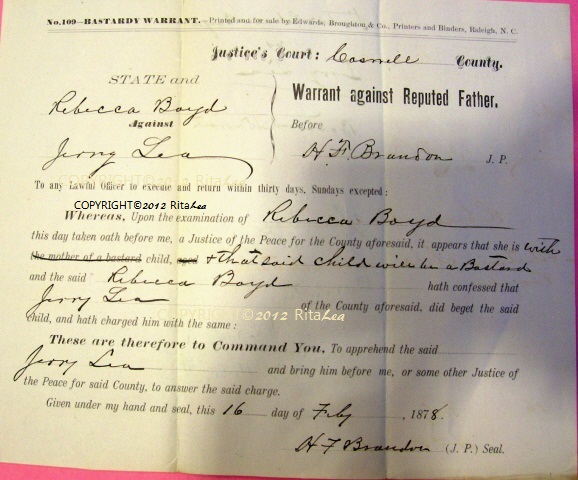 No. 109—BASTARDY WARRANT.—Printed and for sale by Edwards, Broughton & Co., Printers and Binders, Raleigh, N. C.
Justice's Court: Caswell County.
STATE and
Rebecca Boyd
Against
Jerry Lea
Warrant against Reputed Father.
Before
H. F. Brandon J. P.
COPYRIGHT©2012 RitaLea
To any Lawful Officer to execute and return within thirty days, Sundays excepted:
COPYRIGHT©2012 RitaLea
Whereas, Upon the examination of Rebecca Boyd
this day taken oath before me, a Justice of the Peace for the County aforesaid, it appears that she is with
the mother of a bastard child, aged & that said child will be a Bastard
and the said Rebecca Boyd hath confessed that
Jerry Lea of the County aforesaid, did beget the said
COPYRIGHT©2012 RitaLea
child, and hath charged him with the same:
These are therefore to Command You, To apprehend the said
Jerry Lea and bring him before me, or some other Justice of
the Peace for said County, to answer the said charge.
Given under my hand and seal, this 16 day of Feby , 1878.
H F Brandon (J. P.) Seal.